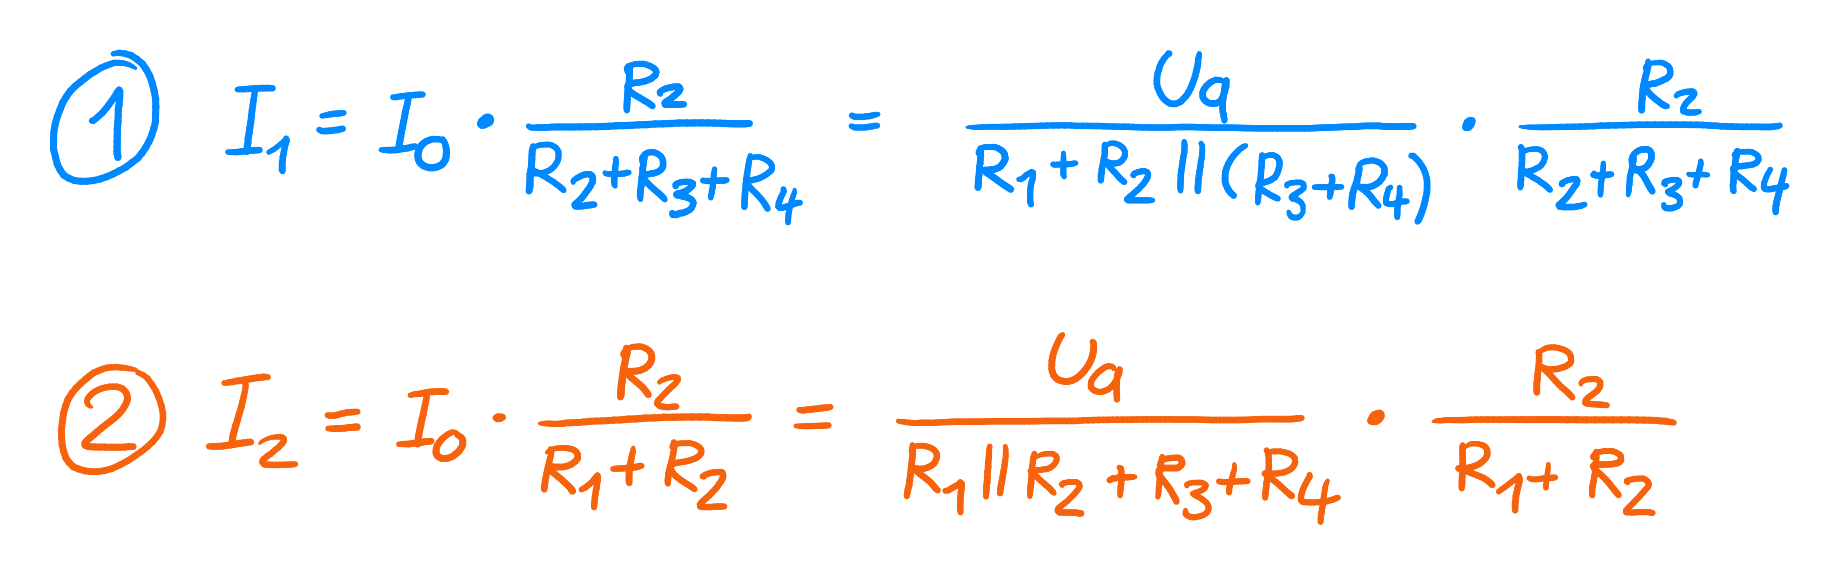 ① I₁ = I₀ · R₂/(R₂+R₃+R₄) = Uq/(R₁+R₂||(R₃+R₄)) · R₂/(R₂+R₃+R₄)
② I₂ = I₀ · R₂/(R₁+R₂) = Uq/(R₁||R₂+R₃+R₄) · R₂/(R₁+R₂)